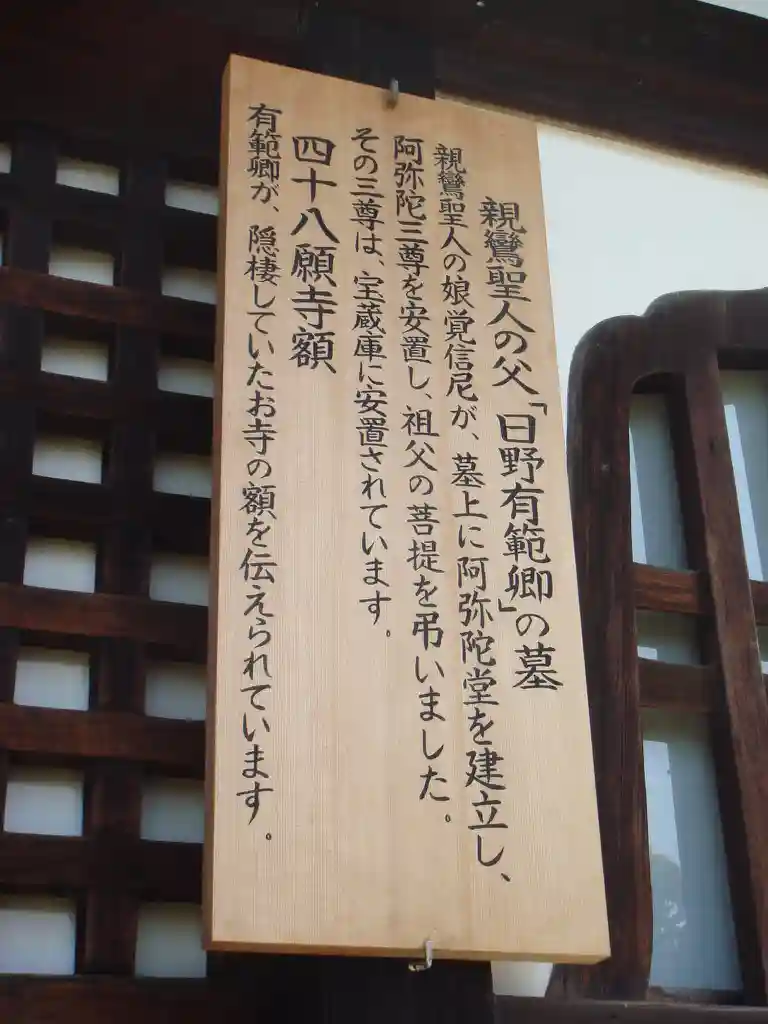 親鸞聖人の父「日野有範卿」の墓
親鸞聖人の娘覚信尼が、墓上に阿弥陀堂を建立し、
阿弥陀三尊を安置し、祖父の菩提を弔いました。
その三尊は、宝蔵庫に安置されています。
四十八願寺額
有範卿が、隠棲していたお寺の額を伝えられています。